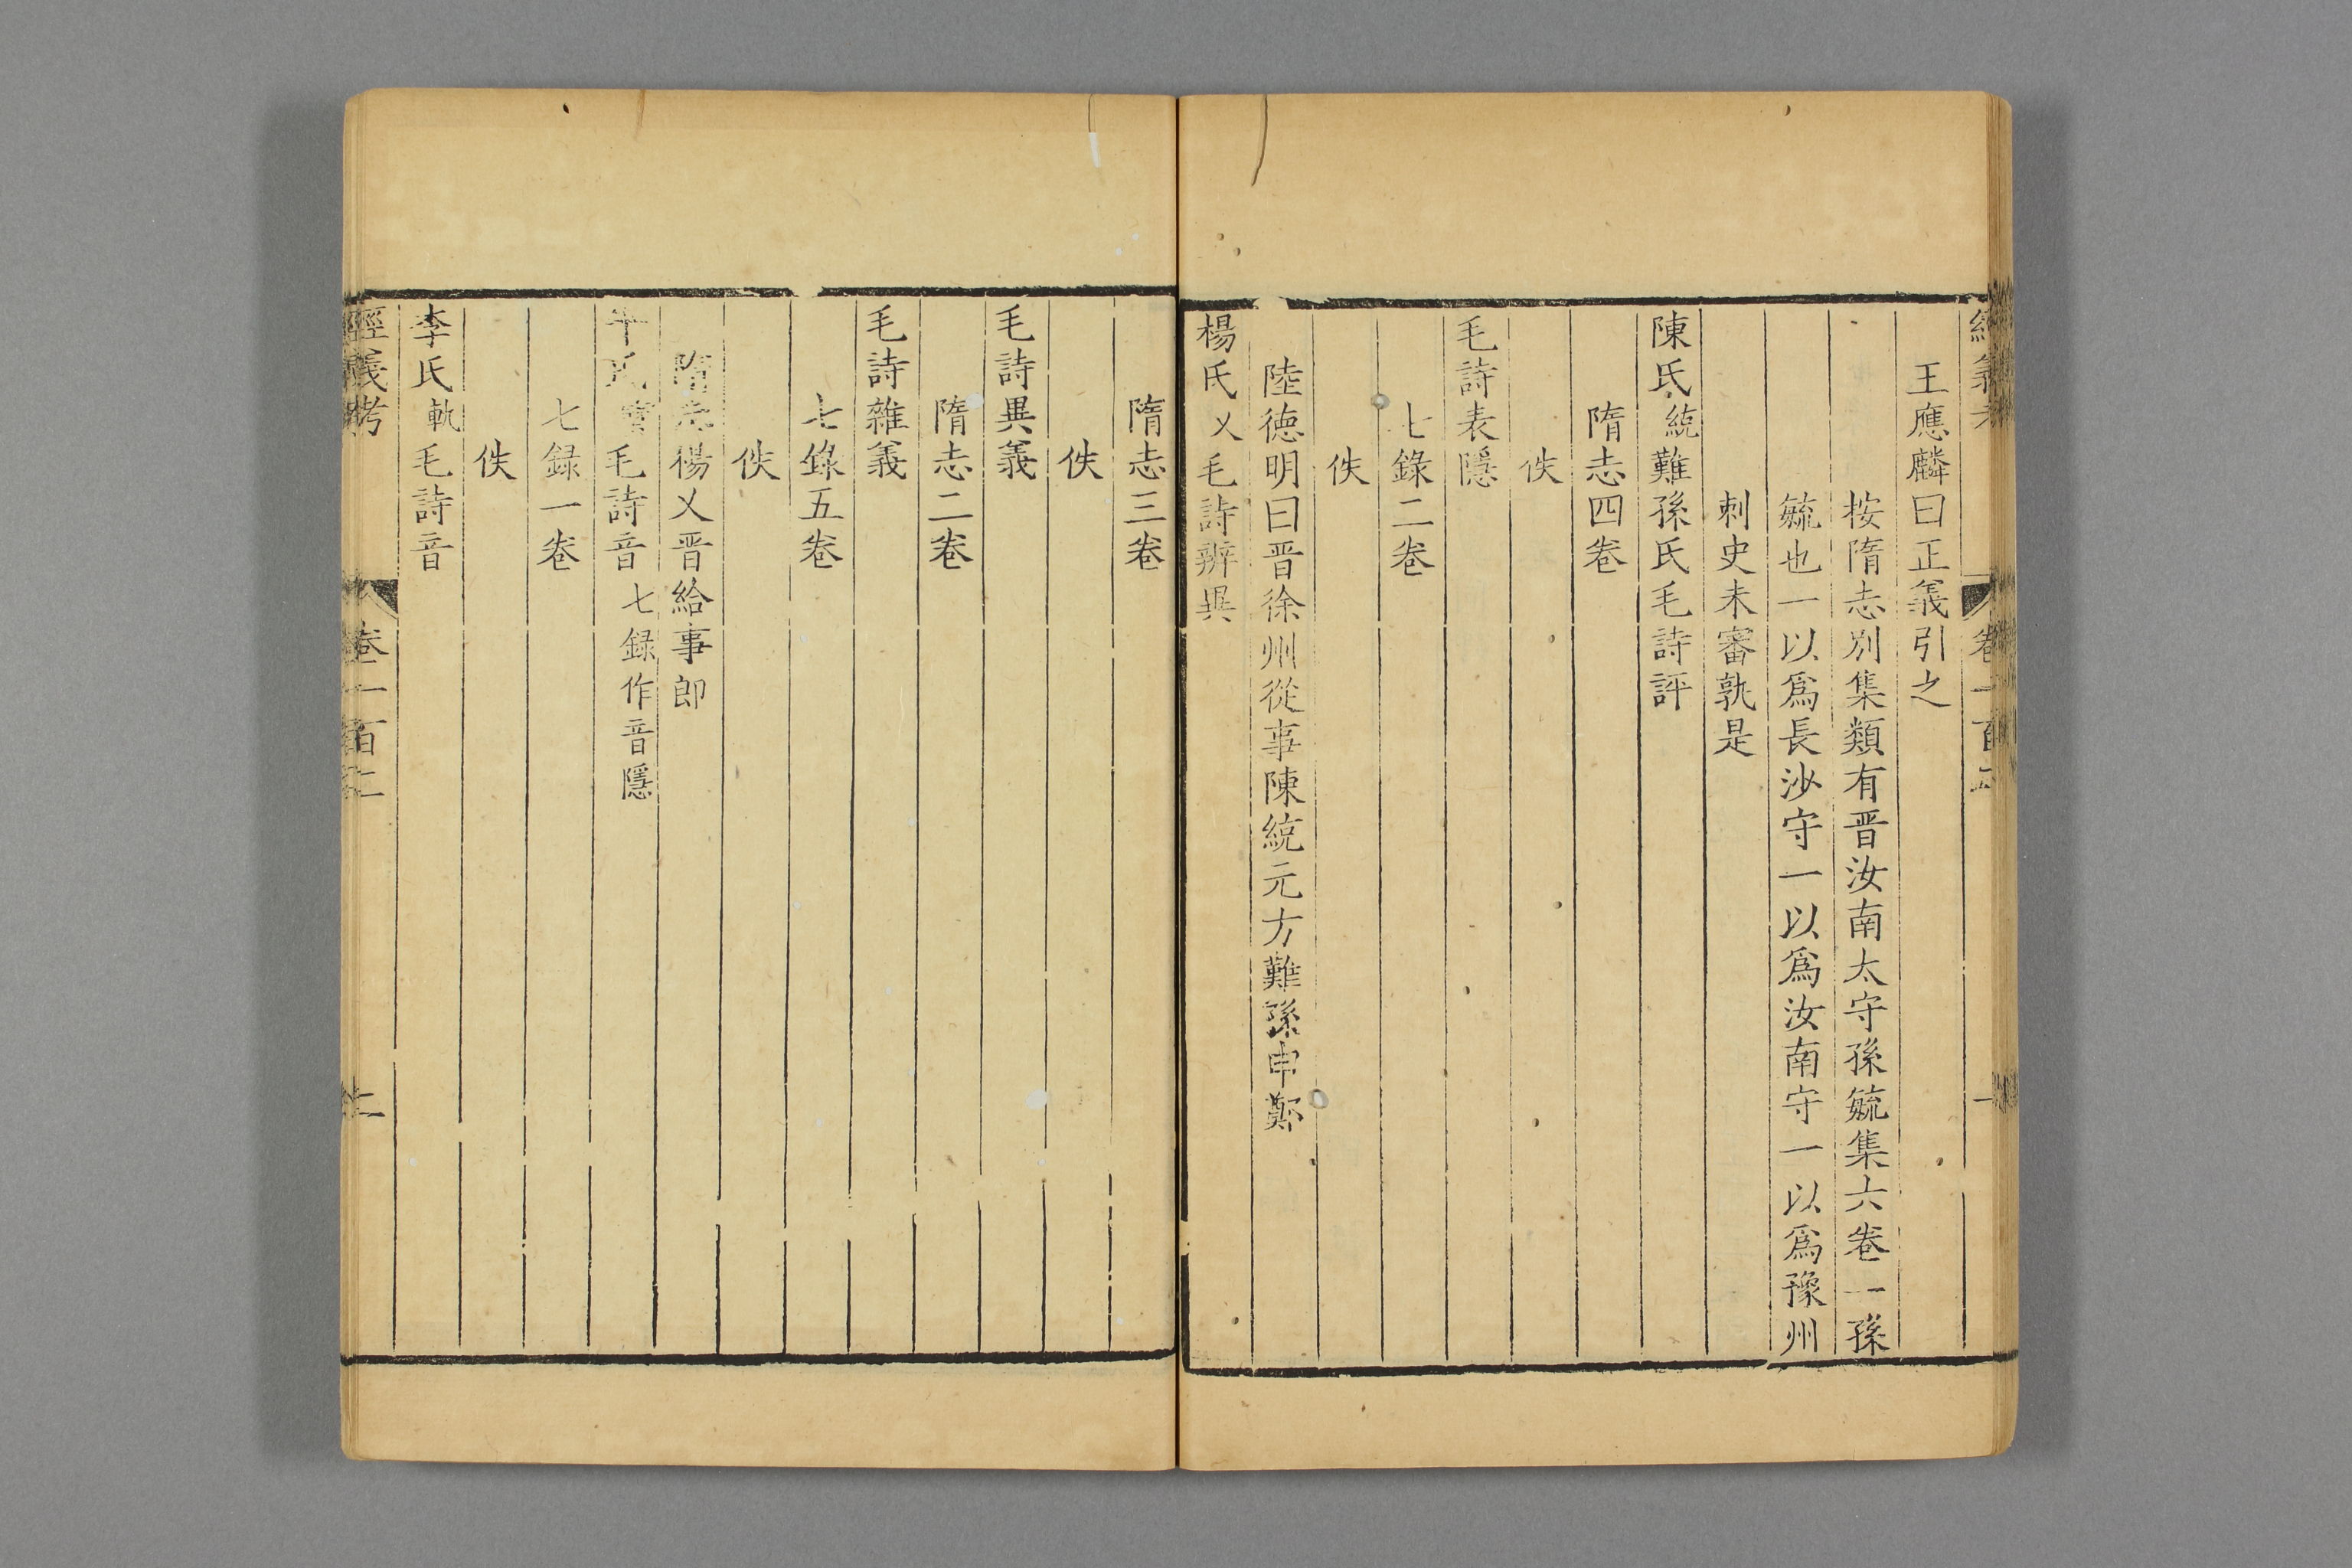 王應麟曰正義引之
按隋志別集類有晋汝南太守孫毓集六卷一孫
毓也一以爲長沙守一以爲汝南守一以爲豫州
刺史未審孰是
陳氏統難孫氏毛詩評
隋志四卷
佚
毛詩表隱
七錄二卷
佚
陸德明曰晋徐州從事陳統元方難孫申鄭
楊氏乂毛詩辨異
隋志三卷
佚
毛詩異義
隋志二卷
毛詩雜義
七錄五卷
佚
隋志楊乂晋給事郎
干氏寶毛詩音七録作音隱
七録一卷
佚
李氏軌毛詩音
經義考
卷一百二